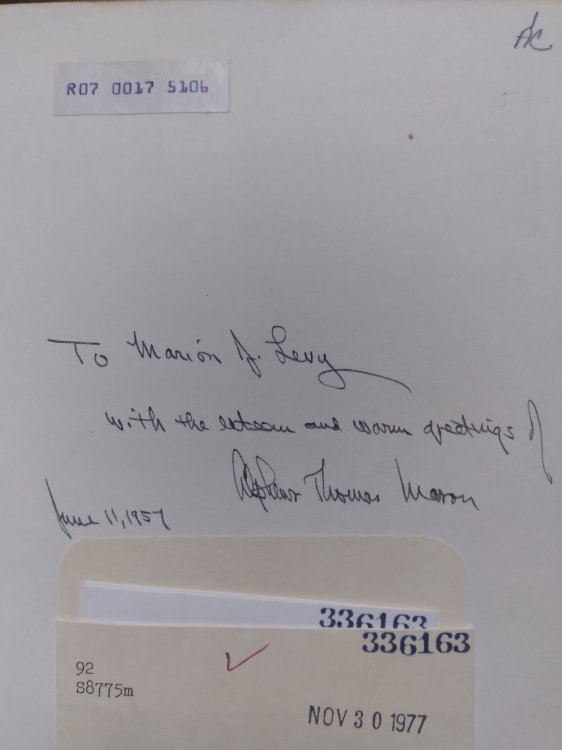 AC
R07 0017 5106
To Marion J. Levy
with the esteem and warm greetings of
Alpheus Thomas Mason
June 11, 1957
336163
336163
92
S8775m
NOV 30 1977